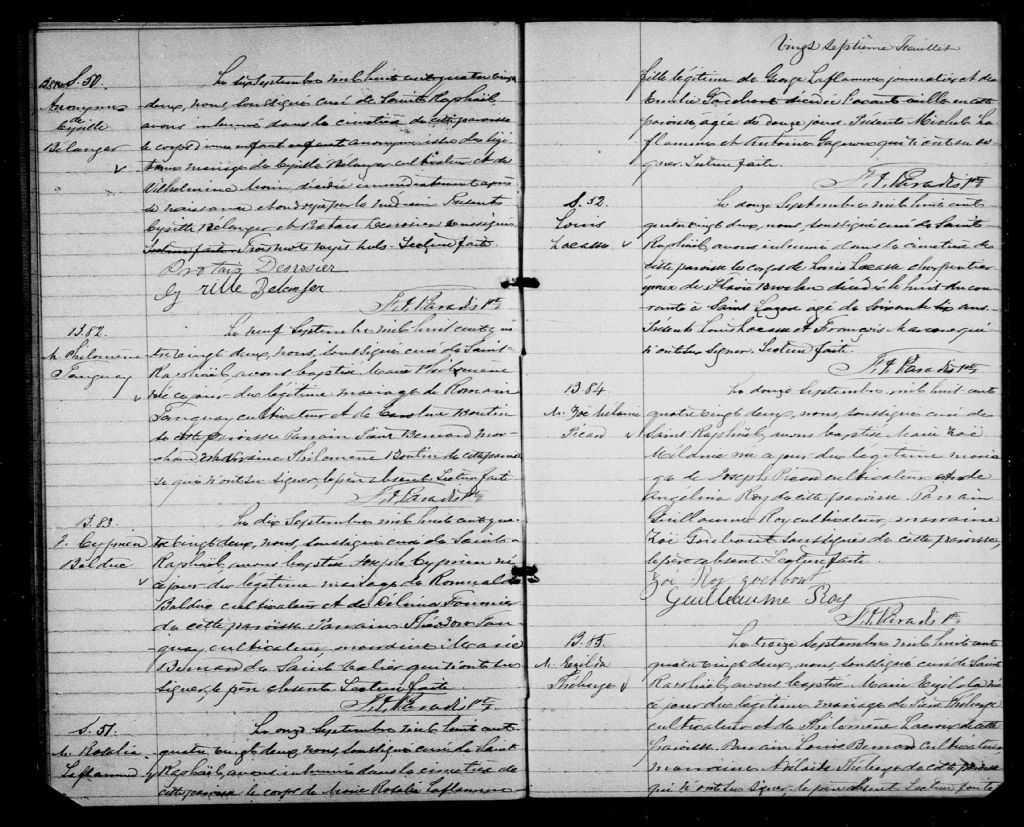 S. 50.
Anonyme
de
Cyrille
Bélanger
Le six Septembre mil huit cent quatre vingt
deux, nous soussigné curé de Saint-Raphaël,
avons inhumé dans le cimetière de cette paroisse
le corps d'un enfant anonyme issu du légi-
time mariage de Cyrille Bélanger cultivateur et de
Vilhelmine décédé immédiatement après
sa naissance et ondoyé par le médecin Présents
Cyrille Bélanger et Protais Desrosier soussignés
Lecture faite Trois mots rayés nuls. Lecture faite
Protais Desrosier
Cyrille Belanger
Ptre
B. 82.
M. Philomène
Tanguay
Le neuf Septembre mil huit cent qua-
tre vingt deux, nous, soussigné curé de Saint-
Raphaël, avons baptisé Marie Philomène
née ce jour du légitime mariage de Romain
Tanguay cultivateur et de Caroline Boutin
de cette paroisse Parrain Pierre Bernard mar-
chand marraine Philomène Boutin de cette parois-
se qui n'ont su signer, le père absent Lecture faite
Ptre
B. 83.
J. Cyprien
Bolduc
Le dix Septembre mil huit cent qua-
tre vingt deux, nous, soussigné curé de Saint-
Raphaël, avons baptisé Joseph Cyprien né
ce jour du légitime mariage de Romuald
Bolduc cultivateur et de Délima Fournier
de cette paroisse Parrain Théodore Tan-
guay, cultivateur, marraine Marie
Bernard de Saint Valier qui n'ont su
signer, le père absent. Lecture faite.
Ptre
S. 51.
M. Rosalie
Laflamme
Le onze Septembre mil huit cent
quatre vingt deux, nous, soussigné curé de Saint
Raphaël, avons inhumé dans le cimetière de
cette paroisse le corps de Marie Rosalie Laflamme
Vingt septième Feuillet
fille légitime de George Laflamme journalier et de
Emélie Godebout décédée en cette
paroisse, âgée de douze jours. Présents Michel La-
flamme et Antoine Gagnon qui n'ont su si-
gner. Lecture faite.
Ptre
S. 52.
Louis
Lacasse
Le douze Septembre mil huit cent
quatre vingt deux, nous, soussigné curé de Saint
Raphaël, avons inhumé dans le cimetière de
cette paroisse le corps de Louis Lacasse charpentier
époux de décédé le huit du cou-
rant à Saint Lazare âgé de soixante ans
Présents Louis Lacasse et François qui
n'ont su signer. Lecture faite.
Ptre
B 84.
M. Zoé Mélanie
Picard
Le douze Septembre mil huit cent
quatre vingt deux, nous, soussigné curé de
Saint Raphaël, avons baptisé Marie Zoé
née ce jour du légitime maria-
ge de Joseph Picard cultivateur et de
Angélina Roy de cette paroisse. Parrain
Guillaume Roy cultivateur, marraine
Zoé Godbout soussignés de cette paroisse,
le père absent. Lecture faite.
Zoé Roy godbout
Guillaume Roy
Ptre
B. 85.
M. Exilda
Théberge
Le treize Septembre mil huit cent
quatre vingt deux, nous, soussigné curé de Saint
Raphaël, avons baptisé Marie Exilda née
ce jour du légitime mariage de Pierre Théberge
cultivateur et de Philomène Lacroix de cette
paroisse Parrain Louis Bernard cultivateur,
marraine Théberge de cette paroisse
qui n'ont su signer, le père absent Lecture faite